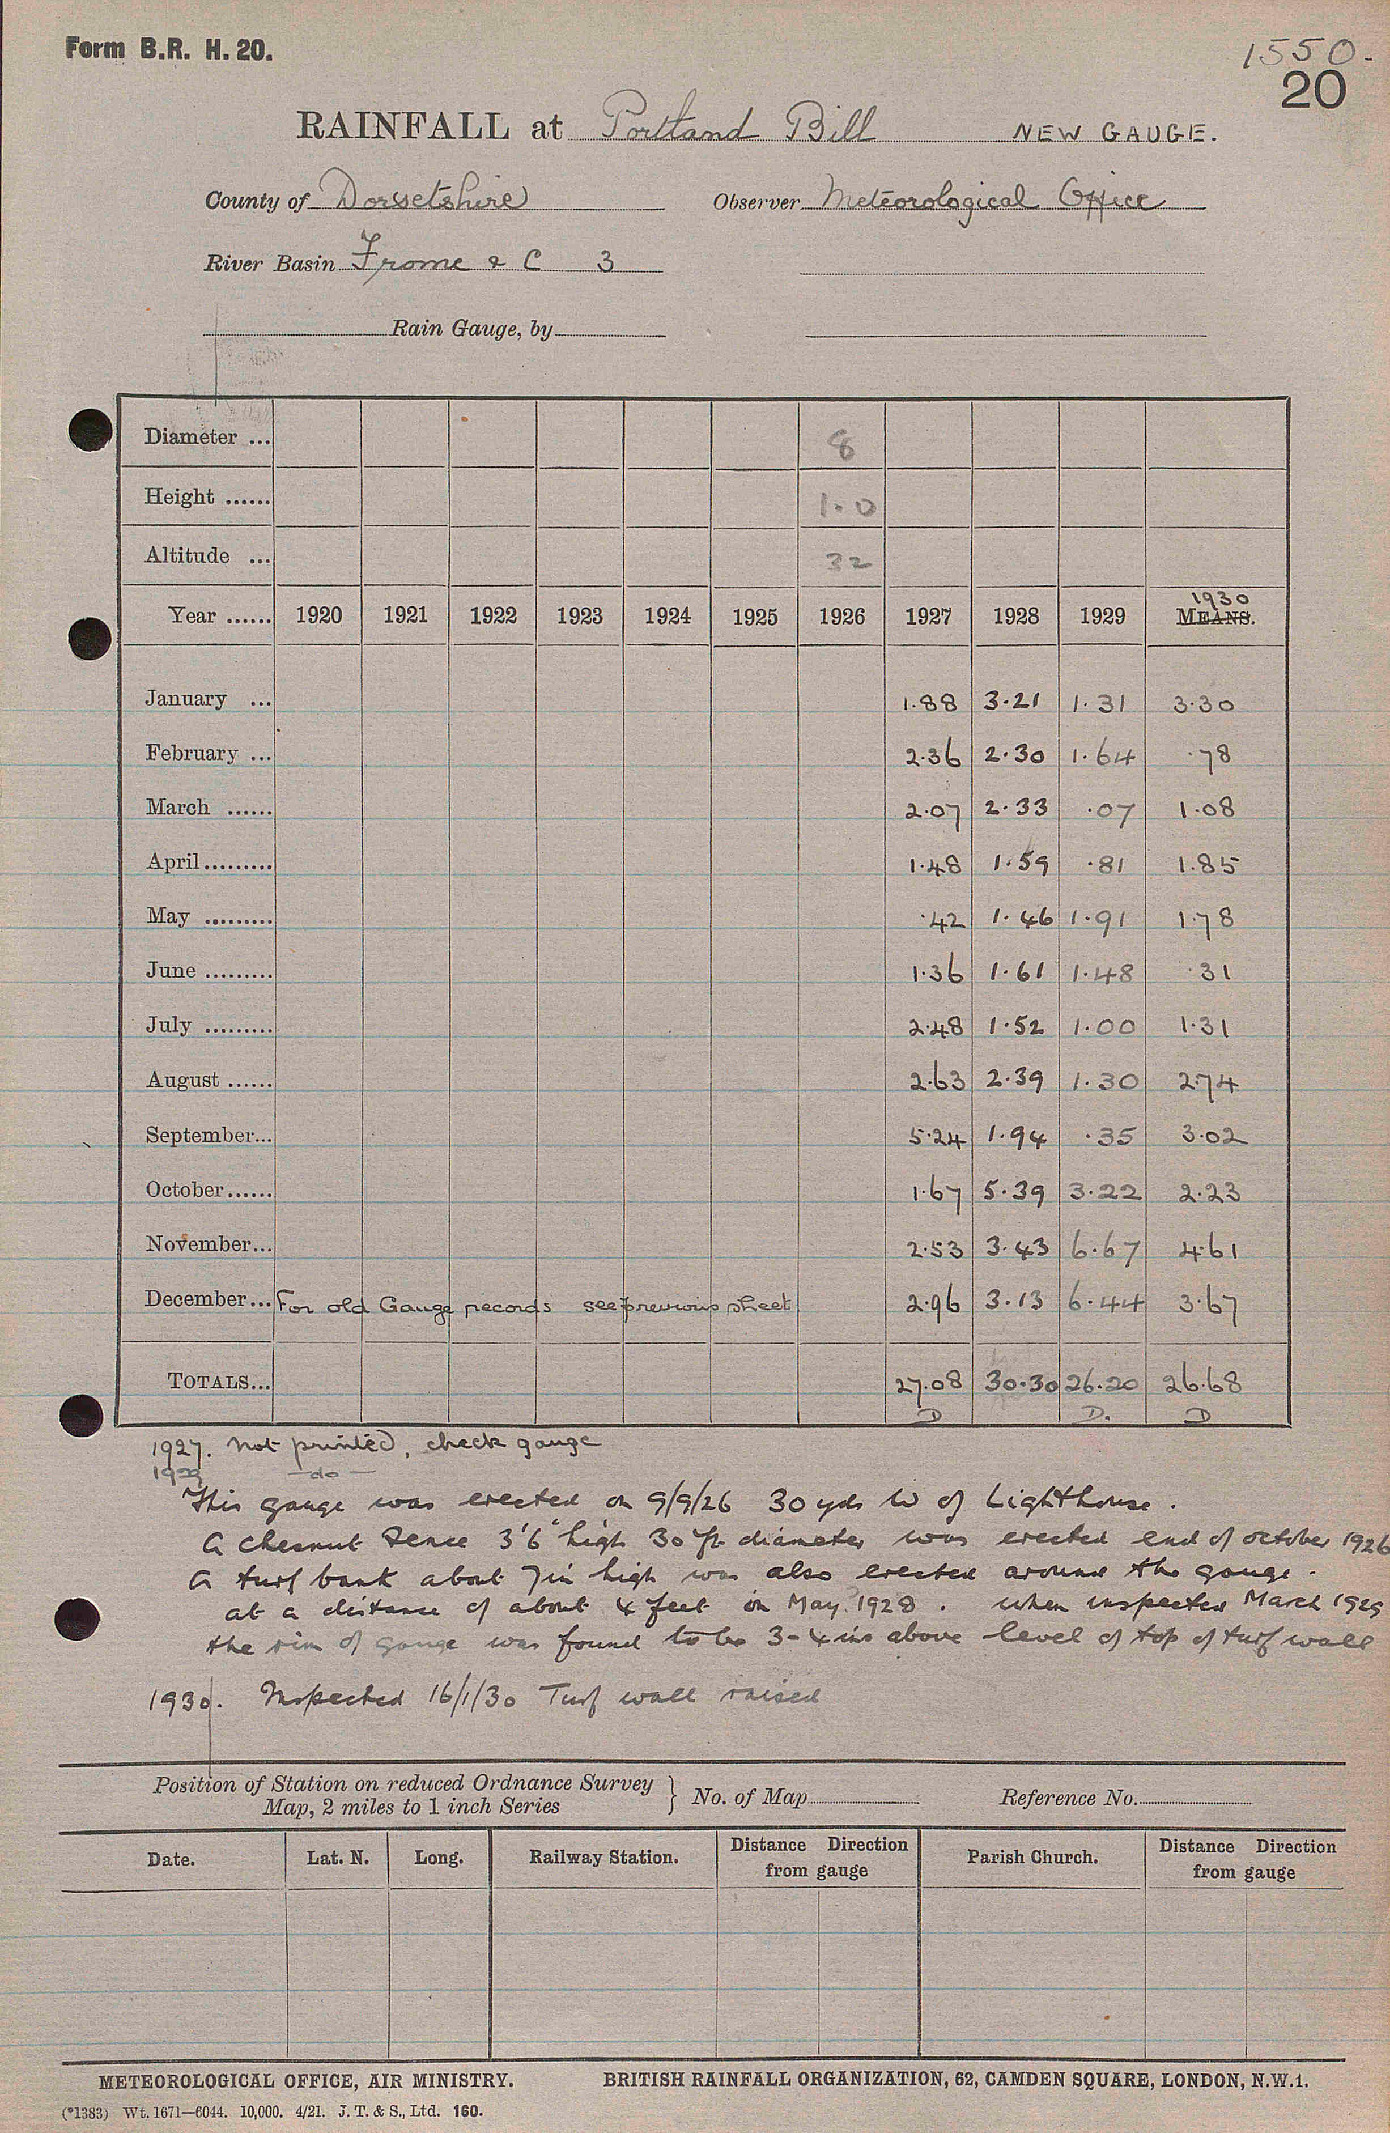 Form B.R. H. 20.
1550.
20
RAINFALL at Portland Bill NEW GAUGE.
County of Dorsetshire Observer Meteorological Office
River Basin Frome & C 3
Rain Gauge, by
Diameter ... 8
Height ...... 1.0
Altitude ... 32
1930
Year ...... 1920 1921 1922 1923 1924 1925 1926 1927 1928 1929 MEANS.
January ... 1.88 3.21 1.31 3.30
February ... 2.36 2.30 1.64 .78
March ...... 2.07 2.33 .07 1.08
April ......... 1.48 1.59 .81 1.85
May ......... .42 1.46 1.91 1.78
June ......... 1.36 1.61 1.48 .31
July ......... 2.48 1.52 1.00 1.31
August ...... 2.63 2.39 1.30 2.74
September... 5.24 1.94 .35 3.02
October...... 1.67 5.39 3.22 2.23
November... 2.53 3.43 6.67 4.61
December... For old Gauge records see previous sheet 2.96 3.13 6.44 3.67
TOTALS... 27.08 30.30 26.20 26.68
D D. D
1927. Not printed, check gauge
1929 —do—
This gauge was erected on 9/9/26 30 yds W of Lighthouse.
A chesnut fence 3'6" high 30 ft diameter was erected end of october 1926
A turf bank about 7in high was also erected around the gauge.
at a distance of about 4 feet in May 1928. when inspected March 1929
the rim of gauge was found to be 3-4 ins above level of top of turf wall
1930. Inspected 16/1/30 Turf wall raised
Position of Station on reduced Ordnance Survey
Map, 2 miles to 1 inch Series } No. of Map Reference No.
Date. Lat. N. Long. Railway Station. Distance Direction from gauge Parish Church. Distance Direction from gauge
METEOROLOGICAL OFFICE, AIR MINISTRY. BRITISH RAINFALL ORGANIZATION, 62, CAMDEN SQUARE, LONDON, N.W.1.
(*1383) Wt. 1671—6044. 10,000. 4/21. J. T. & S., Ltd. 160.